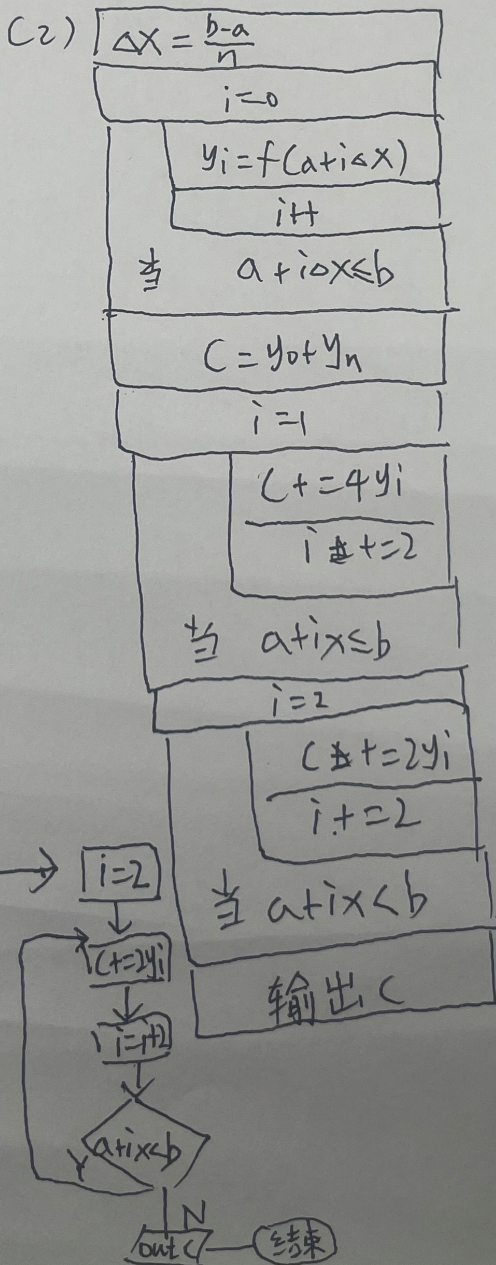 (2)
Δx = (b-a)/n
i=0
yi=f(a+iΔx)
i++
当 a+iΔx≤b
C=y0+yn
i=1
C+=4yi
i+=2
当 a+ix≤b
i=2
C+=2yi
i+=2
当 a+ix<b
输出C
i=2
C+=2yi
i=i+2
a+ix<b
Y
N
out C
结束